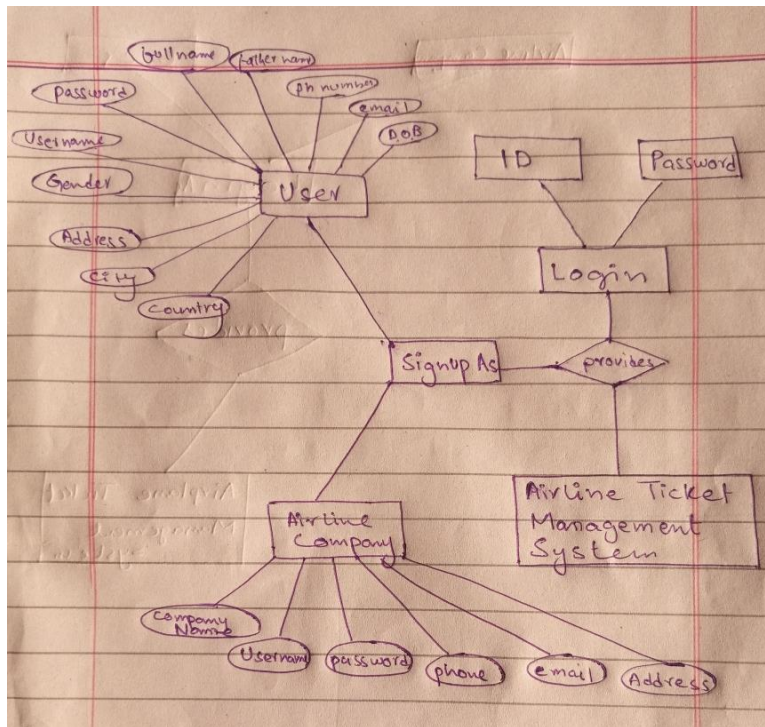 Fullname
Father name
Ph number
Password
email
D.O.B
Username
Gender
User
Address
City
Country
ID
Password
Login
Signup As
provides
Airline Ticket
Management
System
Airline
Company
Company
Name
Username
password
phone
email
Address